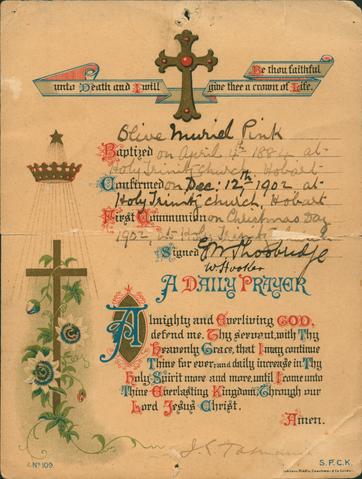 Be thou faithful
unto Death and I will give thee a crown of Life.
Olive Muriel Pink
Baptized on April 4th 1884 at
Holy Trinity Church, Hobart
Confirmed on Dec: 12th 1902, at
Holy Trinity Church, Hobart
First Communion on Christmas Day
1902, at Holy Trinity Church
Signed
A DAILY PRAYER
Almighty and Everliving GOD,
defend me, Thy servent, with Thy
Heavenly Grace, that I may continue
Thine for ever: and daily increase in Thy
Holy Spirit more and more, until I come unto
Thine Everlasting Kingdom: Through our
Lord Jesus Christ.
Amen.
No 109.
S.P.C.K.